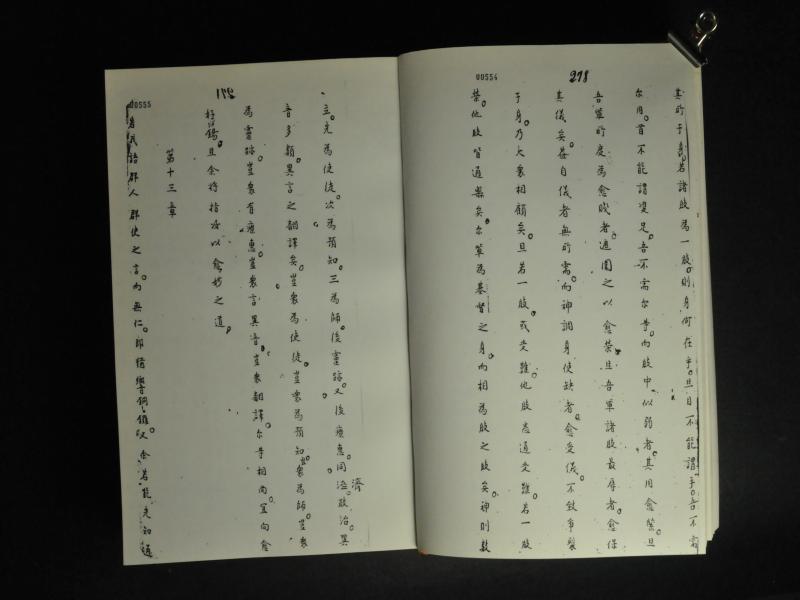 00554
218
其所于乎。若諸肢為一肢。則身何在乎。且目不能謂手。吾不需
尔用。首不能謂足。吾不需尔等。而肢中似弱者。其用愈緊。且
吾輩所度為愈賤者。週圍之以愈榮。且吾輩諸肢最辱者。愈保
其儀矣。蓋自儀者無所需。而神調身使缺者。愈受儀。不致爭裂
于身。乃大衆相顧矣。且若一肢。或受難。他肢悉通受難。若一肢
榮。他肢皆通樂矣。尔輩為基督之身。而相為肢之肢矣。神則設
00555
立。先為使徒。次為預知。三為師。後靈跡。又後療患。同濟。政治。異
音多類。異言之翻譯矣。豈衆為使徒。豈衆為預知。豈衆為師。豈衆
為靈跡。豈衆有療患。豈衆言異音。豈衆翻譯。尔等相尚。宜向愈
好錫。且余將指汝以愈妙之道。
第十三章
若我語群人群使之言。而無仁。即猶響銅。鑼。又余若能先知通